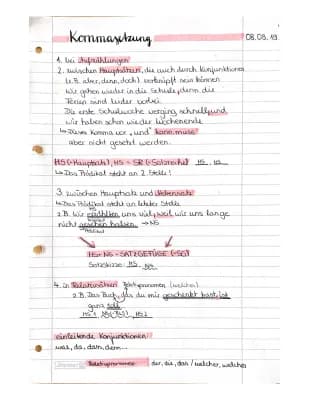 Kommasetzung
08.09.19
1. bei Aufzählungen
2. zwischen Hauptsätzen, die auch durch Konjunktionen
(z.B. aber, denn, doch) verknüpft sein können
Wir gehen wieder in die Schule, denn die
Ferien sind leider vorbei.
Die erste Schulwoche verging schnell, und
wir haben schon wieder Wochenende
↳ Dieses Komma vor „und" kann, muss
aber nicht gesetzt werden.
HS (=Hauptsatz), HS = SR (=Satzreihe) HS, HS
↳ Das Prädikat steht an 2. Stelle!
3. zwischen Hauptsatz und Nebensatz
↳ Das Prädikat steht an letzter Stelle
z.B. Wir erzählten uns viel, weil wir uns lange
nicht gesehen haben. → NS
Prädikat
HS + NS = SATZGEFÜGE (=SG)
Satzskizze: HS, NS
4. in Relativsätzen Relativpronomen (welcher)
z.B. Das Buch, das du mir geschenkt hast, ist
ganz toll.
HS 1, NS (RS), HS 2
einleitende Konjunktionen:
weil, da, dass, denn...
Relativpronomen: der, die, das / welcher, welches